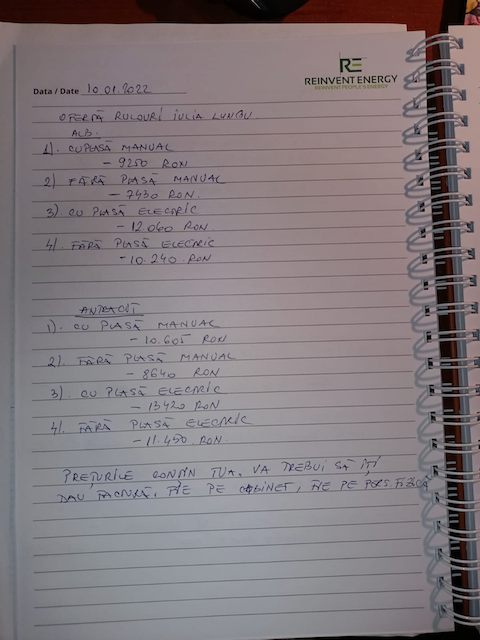 RE
REINVENT ENERGY
REINVENT PEOPLE'S ENERGY
Data / Date 10.01.2022
OFERTĂ RULOURI IULIA LUNGU.
ALB.
1). CU PLASĂ MANUAL
- 9250 RON
2) FĂRĂ PLASĂ MANUAL
- 7430 RON.
3) CU PLASĂ ELECTRIC
- 12.060 RON.
4). FĂRĂ PLASĂ ELECTRIC
- 10.240 RON
ANTRACIT
1). CU PLASĂ MANUAL
- 10.605 RON
2). FĂRĂ PLASĂ MANUAL
- 8640 RON
3). CU PLASĂ ELECTRIC
- 13420 RON
4). FĂRĂ PLASĂ ELECTRIC
- 11.450 RON.
PREȚURILE CONȚIN TVA, VA TREBUI SĂ ÎȚI
DAU FACTURĂ, FIE PE CABINET, FIE PE PERS FIZICĂ